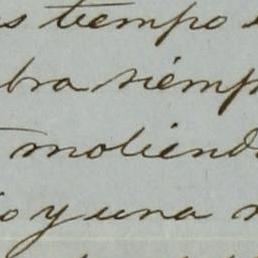 s tiempo
bra siemp
moliend
io y una